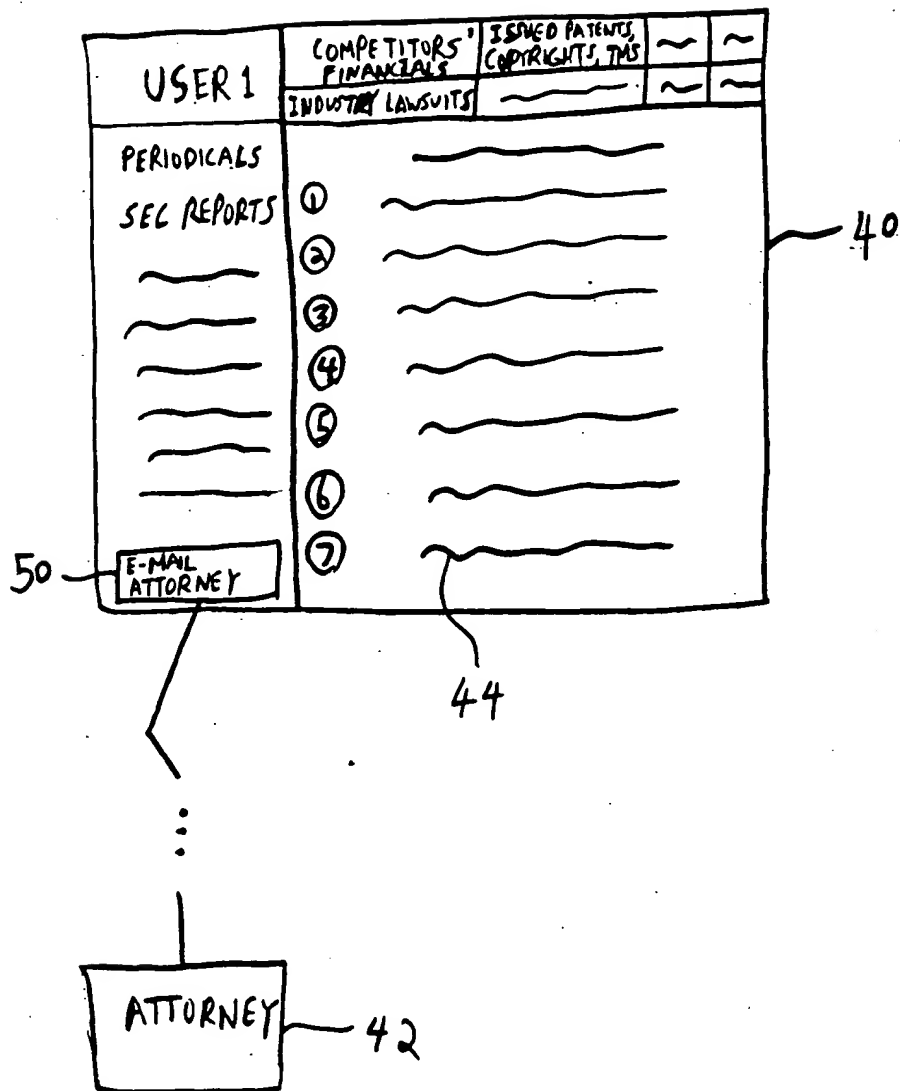 USER 1
COMPETITORS'
FINANCIALS
ISSUED PATENTS,
COPYRIGHTS, TMS
INDUSTRY LAWSUITS
PERIODICALS
SEC REPORTS
1
2
3
4
5
6
7
40
50
E-MAIL
ATTORNEY
44
ATTORNEY
42